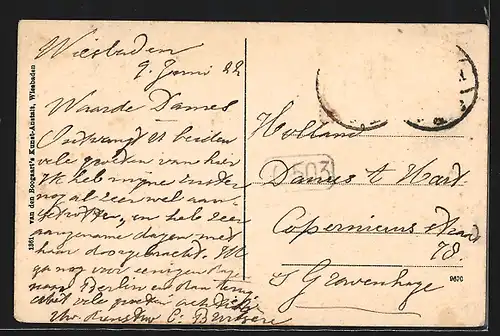 Wiesbaden
9 Juni 22
Waarde Dames
Ontvangt U beiden
vele groeten van hier
Ik heb mijne zuster
nog al zeer wel aan-
getroffen, en heb zeer
aangename dagen met
haar doorgemaakt. Ik
ga nog voor eenigen
naar Berlin en dan terug
vele groeten
Uw
1361 van den Boogaart's Kunst-Anstalt, Wiesbaden
Holland
503
Dames 't Hart
Copernicus straat
78.
9670
s Gravenhage